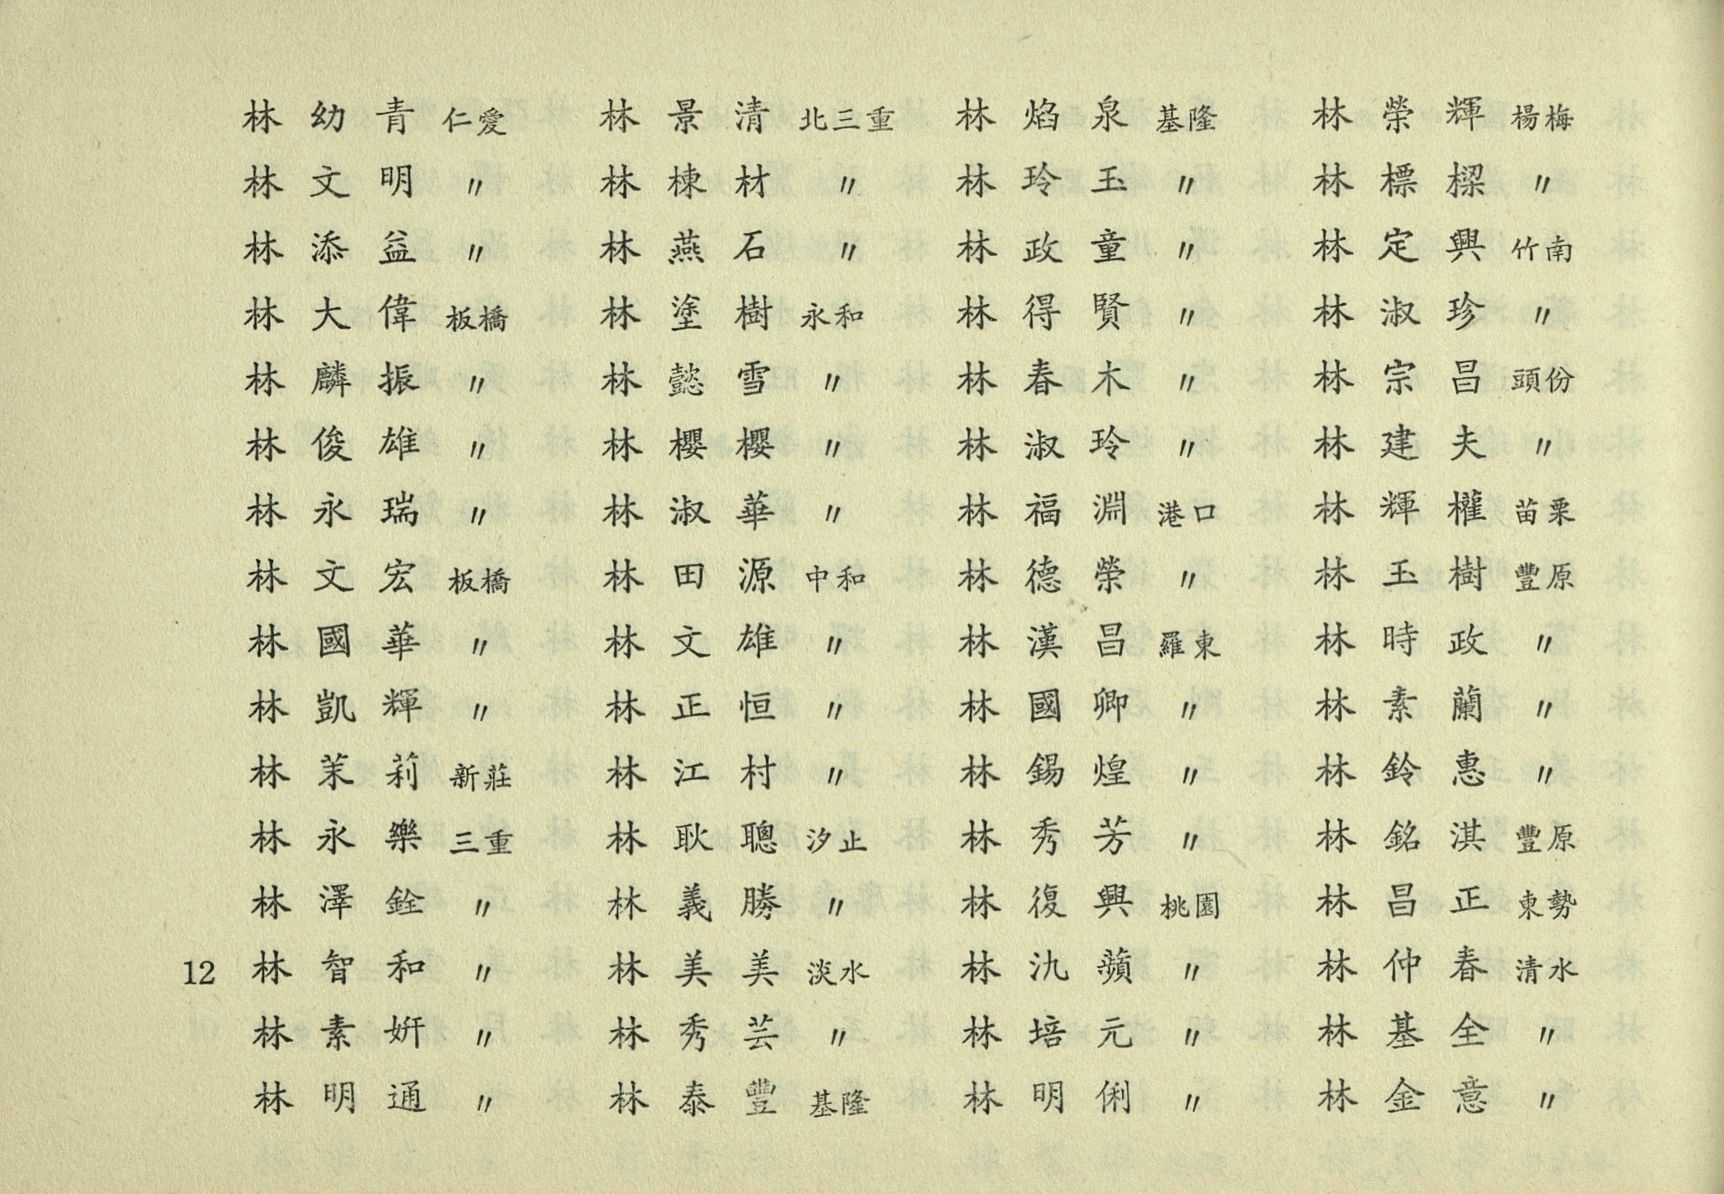 林幼青 仁愛 林景清 北三重 林焰泉 基隆 林榮輝 楊梅
林文明 〃 林棟材 〃 林玲玉 〃 林標樑 〃
林添益 〃 林燕石 〃 林政童 〃 林定興 竹南
林大偉 板橋 林塗樹 永和 林得賢 〃 林淑珍 〃
林麟振 〃 林懿雪 〃 林春木 〃 林宗昌 頭份
林俊雄 〃 林櫻櫻 〃 林淑玲 〃 林建夫 〃
林永瑞 〃 林淑華 〃 林福淵 港口 林輝權 苗栗
林文宏 板橋 林田源 中和 林德榮 〃 林玉樹 豐原
林國華 〃 林文雄 〃 林漢昌 羅東 林時政 〃
林凱輝 〃 林正恒 〃 林國卿 〃 林素蘭 〃
林茉莉 新莊 林江村 〃 林錫煌 〃 林鈴惠 〃
林永樂 三重 林耿聰 汐止 林秀芳 〃 林銘淇 豐原
林澤銓 〃 林義勝 〃 林復興 桃園 林昌正 東勢
12 林智和 〃 林美美 淡水 林氿蘋 〃 林仲春 清水
林素姸 〃 林秀芸 〃 林培元 〃 林基全 〃
林明通 〃 林泰豐 基隆 林明俐 〃 林金意 〃